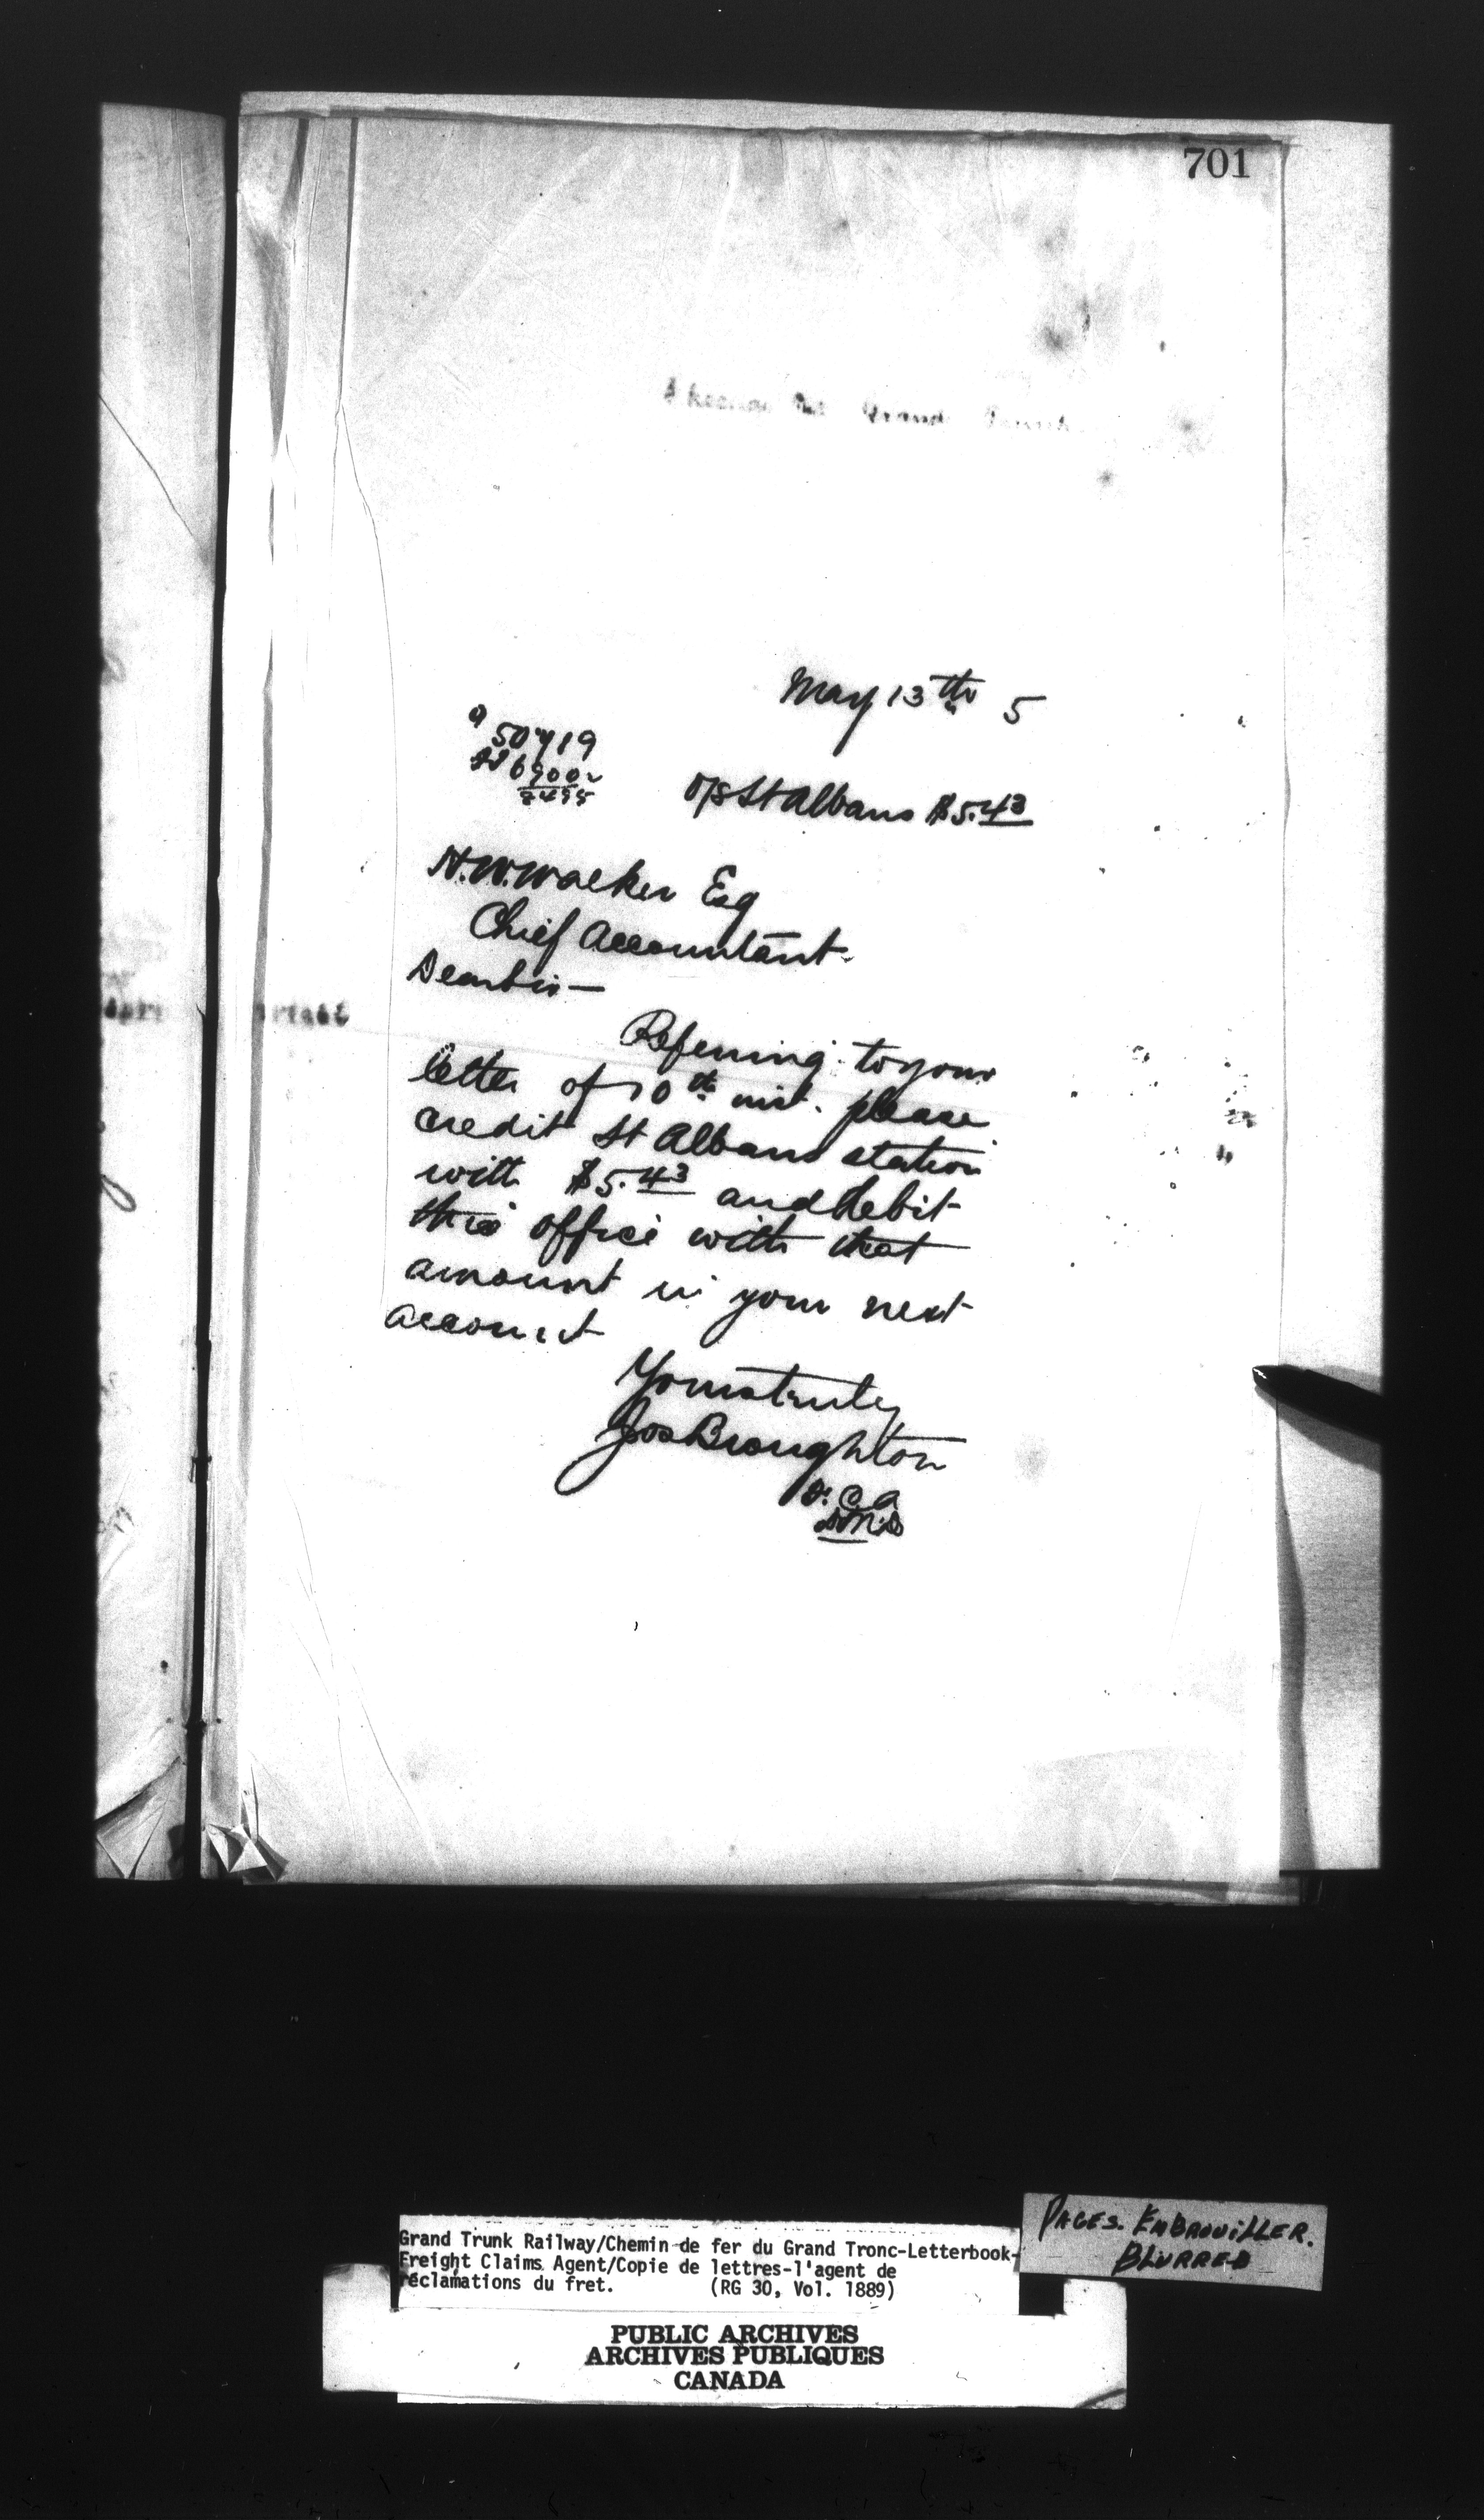 701
May 13th 5
50719
O/S St Albans $5.43
H.W. Walker Esq
Chief Accountant.
Dear Sir —
Referring to your
letter of 10th inst. please
credit St Albans station
with $5.43 and debit
this office with that
amount in your next
account
Yours truly
Jos Broughton
Grand Trunk Railway/Chemin de fer du Grand Tronc-Letterbook-
Freight Claims Agent/Copie de lettres-l'agent de
réclamations du fret. (RG 30, Vol. 1889)
PAGES. EMBROUILLER.
BLURRED
PUBLIC ARCHIVES
ARCHIVES PUBLIQUES
CANADA